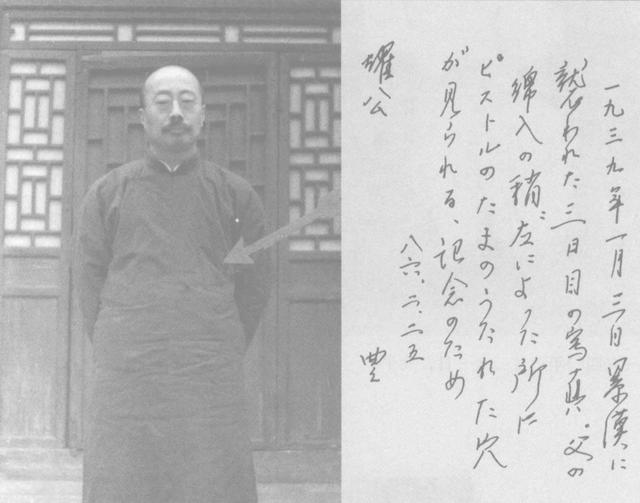 一九三九年一月三日暴漢に
襲われた三日目の写真。父の
綿入の稍〻左によった所に
ピストルのたまのうたれた穴
が見られる、記念のため
八六、二、二五
豊
耀公